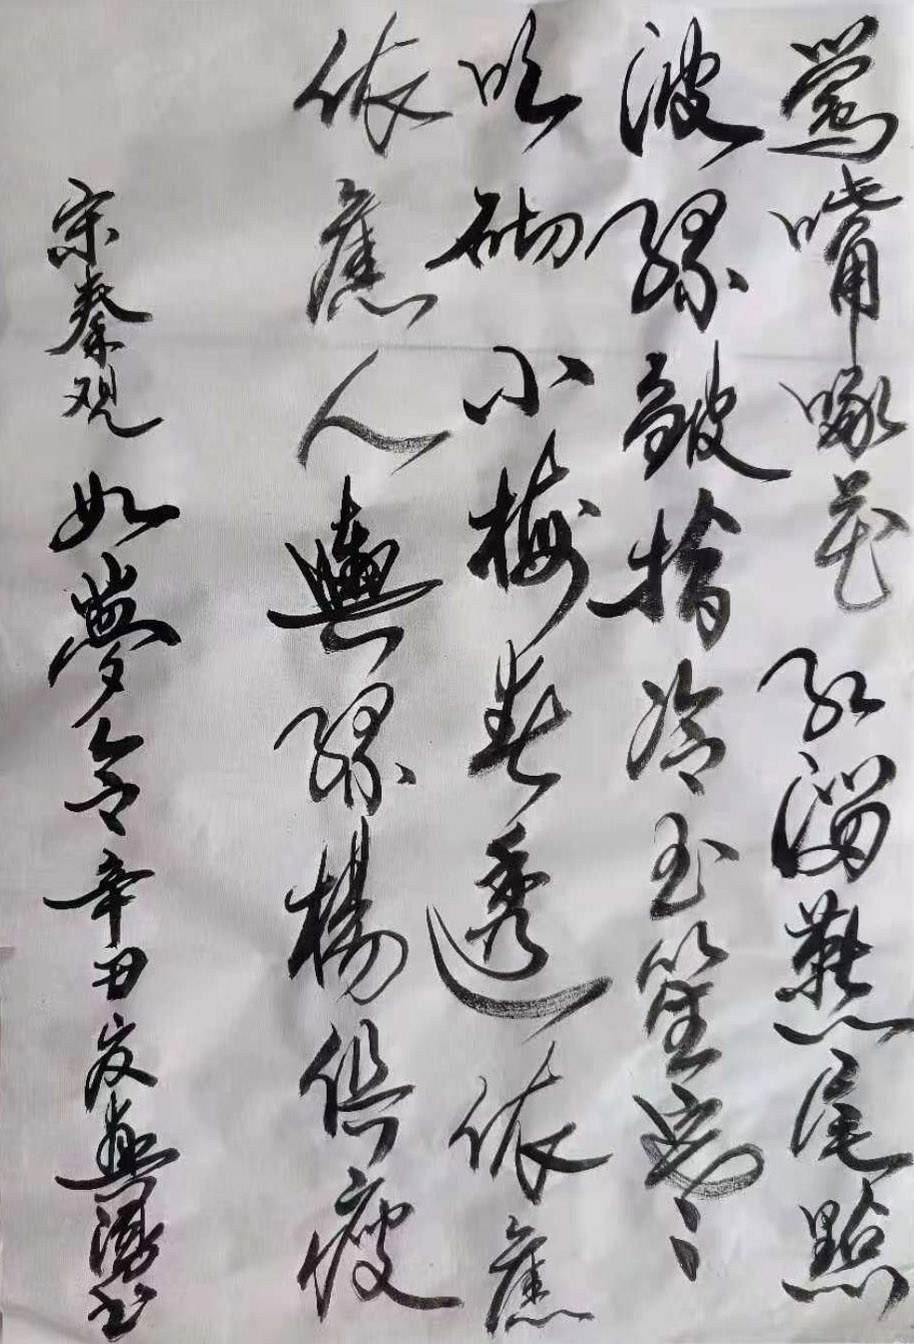 鶯嘴啄花红溜燕尾點
波绿皱指冷玉笙寒
吹砌小梅春透依舊
依舊人與绿楊俱瘦
宋秦观如夢令辛丑岁书